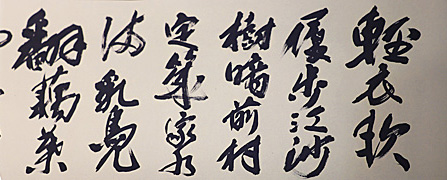 輕衣軟
履步江沙
樹暗前村
定幾家水
滿乳鳧
翻藕葉